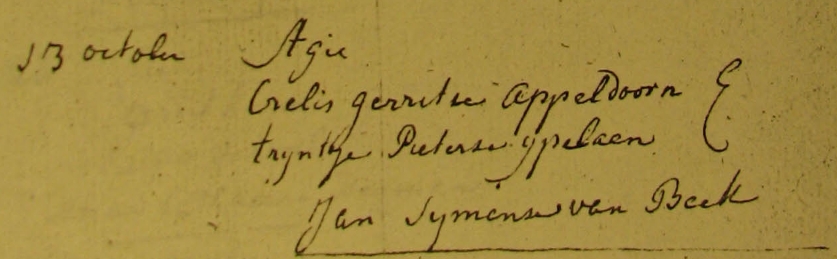 13 october Agie
Crelis gerritse Appeldoorn E
tryntje Pieterse ypelaen
Jan Symense van Beek